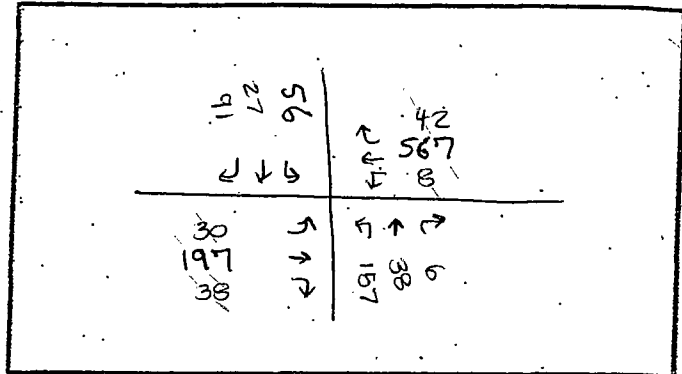 91
27
56
42
567
8
30
197
38
157
38
6